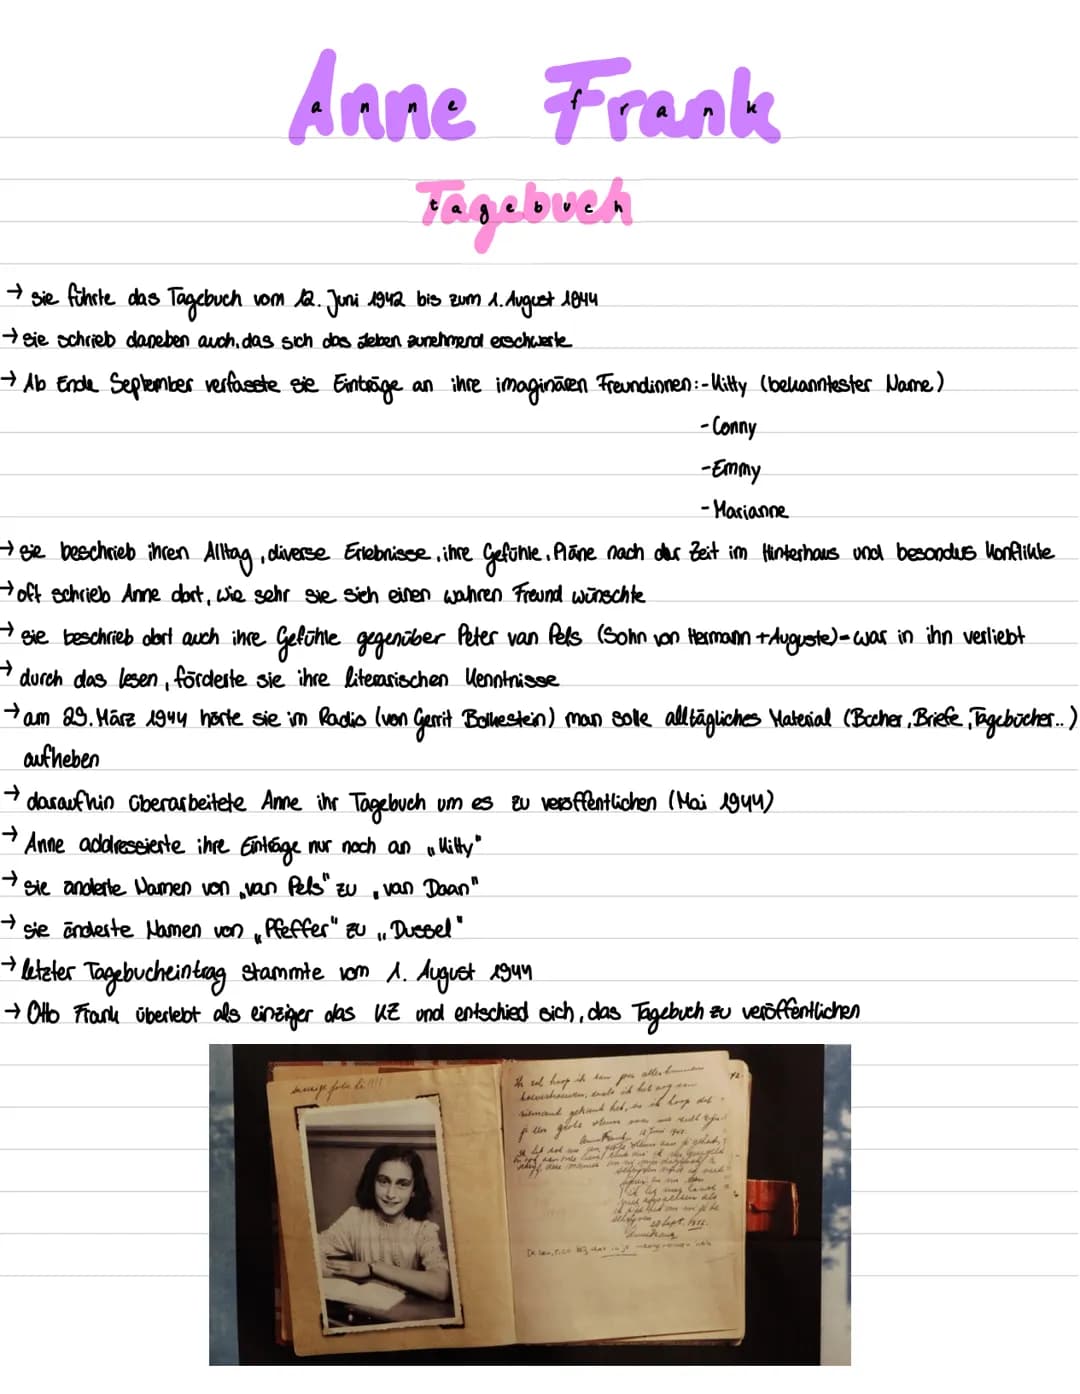 Anne Frank
anne frank
Tagebuch
tagebuch
→ sie führte das Tagebuch vom 12. Juni 1942 bis zum 1. August 1944
→ sie schrieb daneben auch, das sich das Leben zunehmend erschwerte
→ Ab Ende September verfasste sie Einträge an ihre imaginären Freundinnen: - Kitty (bekanntester Name)
- Conny
- Emmy
- Marianne
→ sie beschrieb ihren Alltag, diverse Erlebnisse, ihre Gefühle, Pläne nach der Zeit im Hinterhaus und besonders Konflikte
→ oft schrieb Anne dort, wie sehr sie sich einen wahren Freund wünschte
→ sie beschrieb dort auch ihre Gefühle gegenüber Peter van Pels (Sohn von Hermann + Auguste) - war in ihn verliebt
→ durch das lesen, förderte sie ihre literarischen Kenntnisse
→ am 29. März 1944 hörte sie im Radio (von Gerrit Bolkestein) man solle alltägliches Material (Bücher, Briefe, Tagebücher..)
aufheben
→ daraufhin überarbeitete Anne ihr Tagebuch um es zu veröffentlichen (Mai 1944)
→ Anne addressierte ihre Einträge nur noch an „Kitty"
→ sie änderte Namen von „van Pels" zu „van Daan"
→ sie änderte Namen von „Pfeffer" zu „Dussel"
→ letzter Tagebucheintrag stammte vom 1. August 1944
→ Otto Frank überlebt als einziger das KZ und entschied sich, das Tagebuch zu veröffentlichen